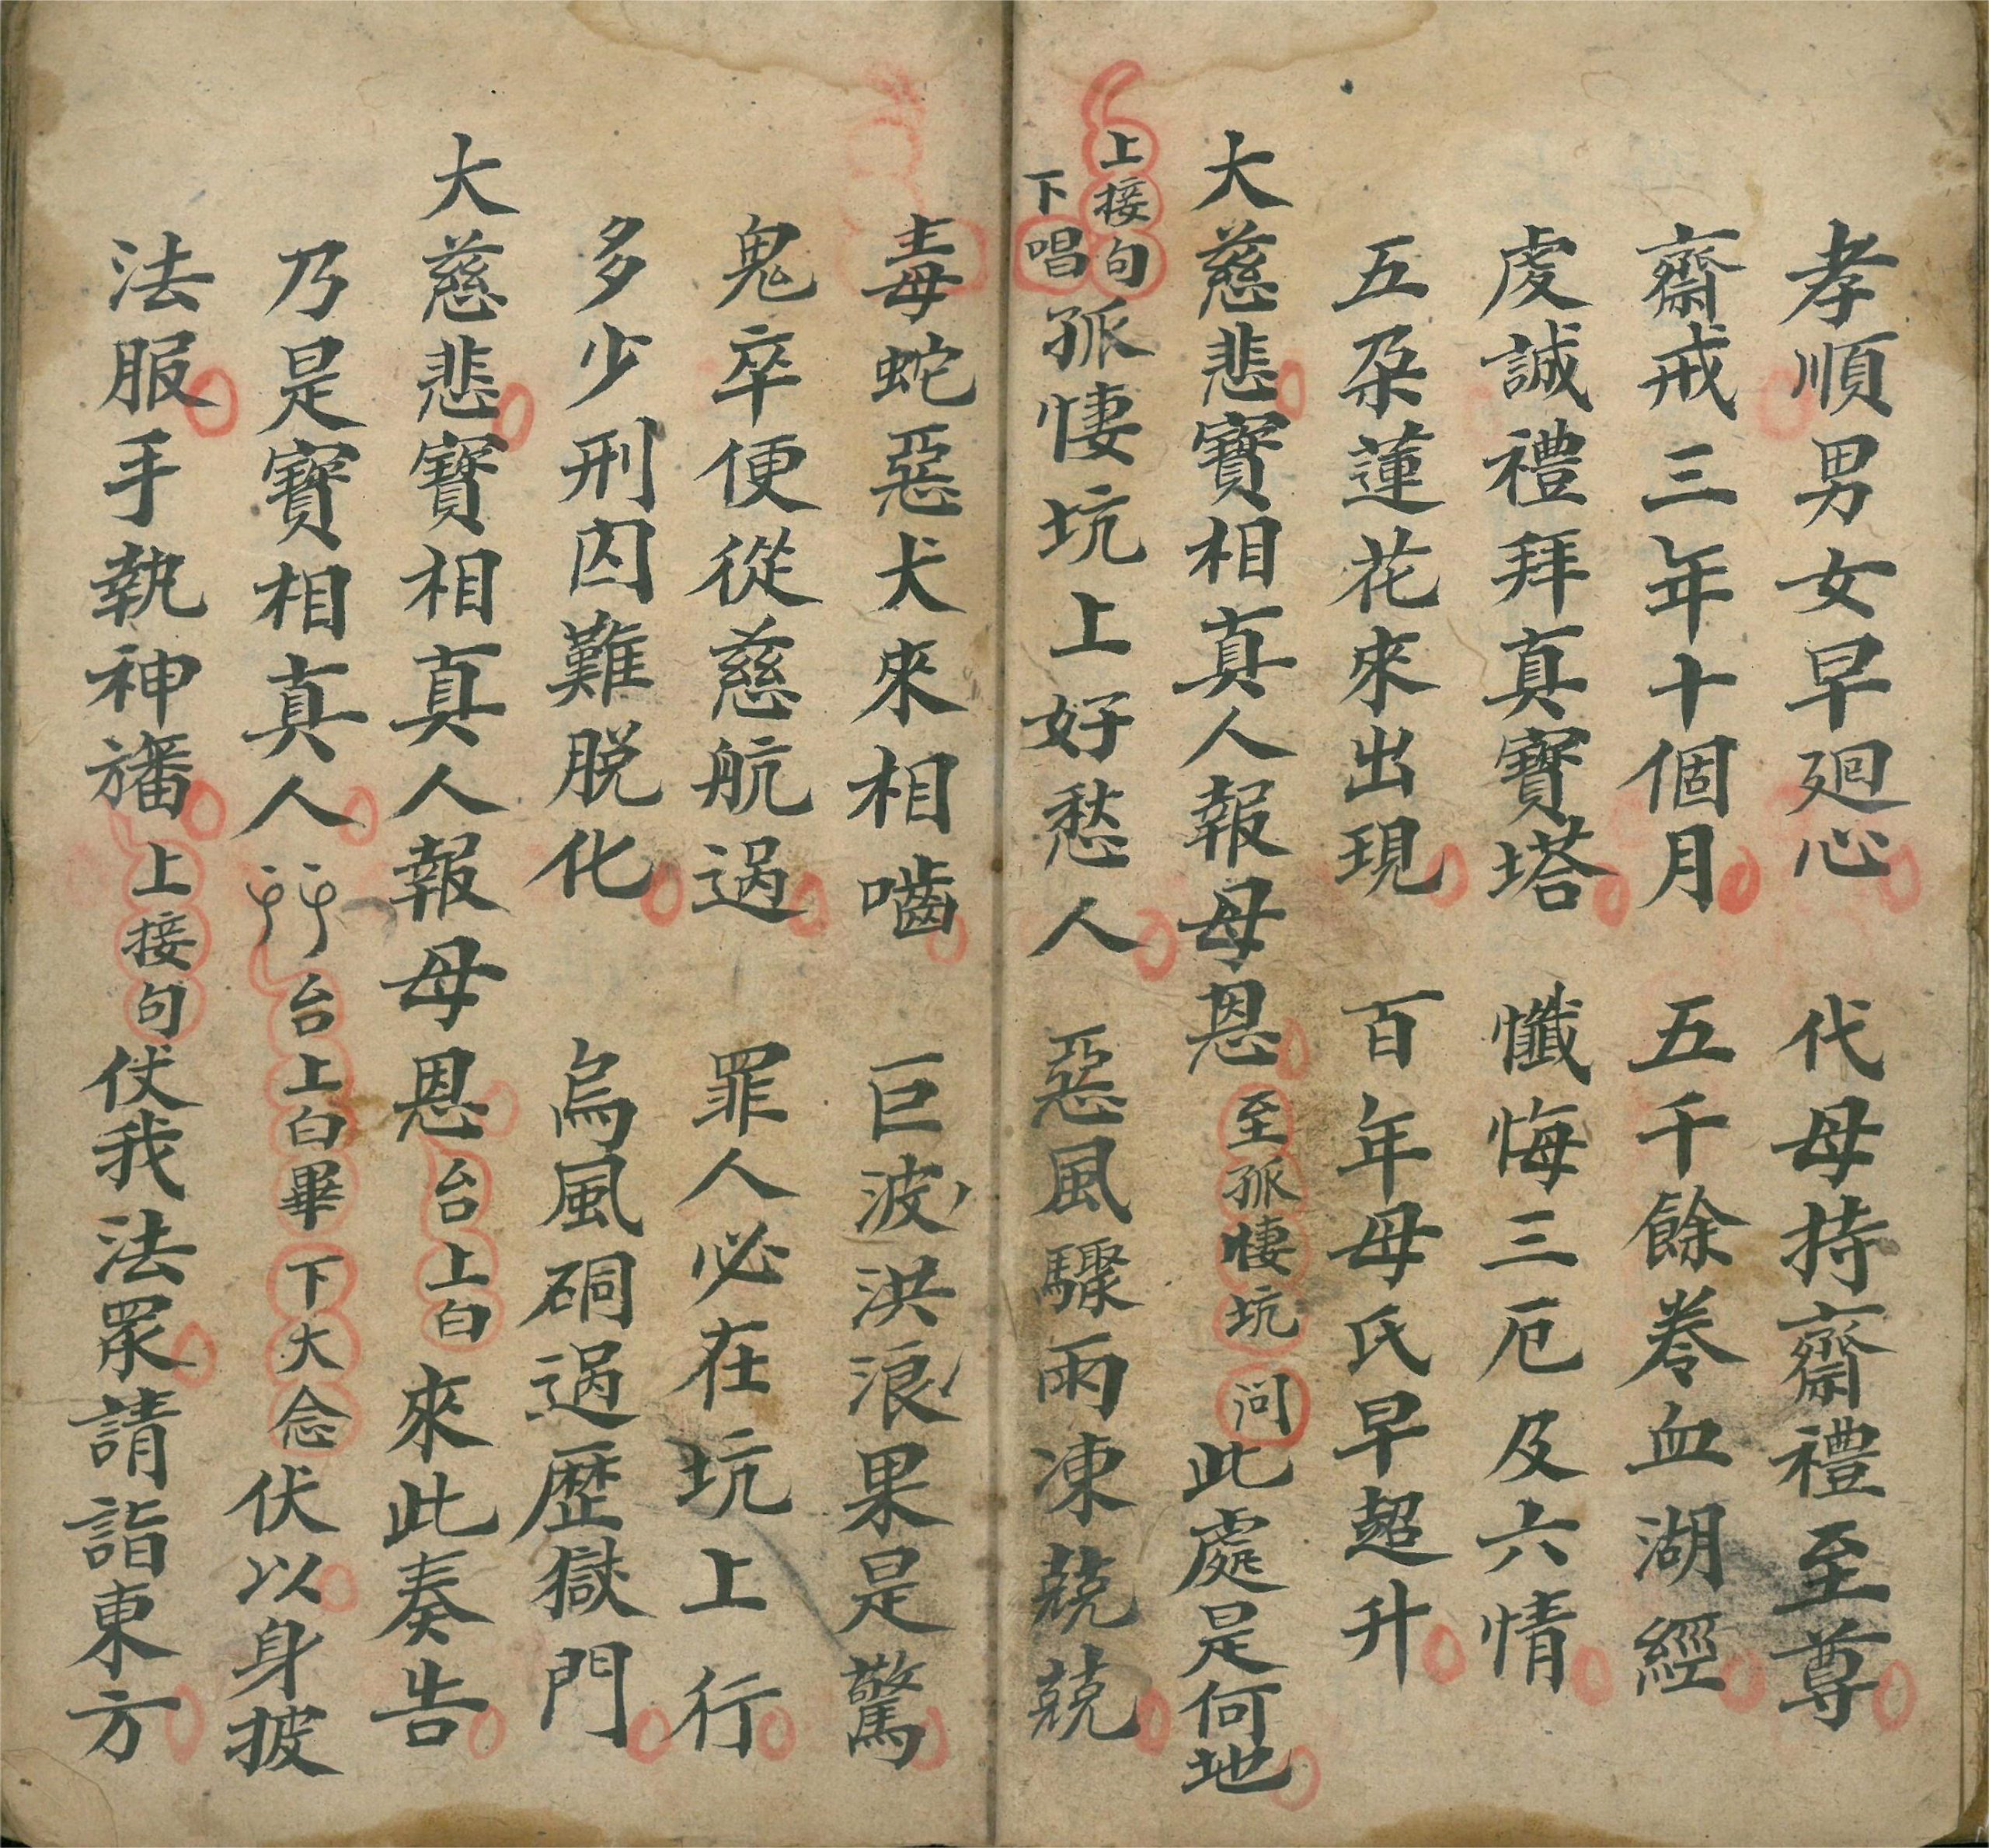 孝順男女早廻心　代母持齋禮至尊
齋戒三年十個月　五千餘卷血湖經
虔誠禮拜真寶塔　懺悔三厄及六情
五朶蓮花來出現　百年母氏早超升
大慈悲寶相真人報母恩　至孤悽坑　问　此處是何地
上接句
下唱
孤悽坑上好愁人　惡風驟雨凍兢兢
毒蛇惡犬來相嚙　巨波洪浪果是驚
鬼卒便從慈航過　罪人必在坑上行
多少刑囚難脱化　烏風硐過歷獄門
大慈悲寶相真人報母恩　台上白　來此奏告
乃是寶相真人　台上白畢　下大念　伏以身披
法服手執神旛　上接句　仗我法眾請詣東方